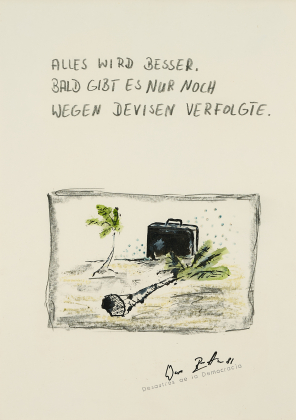 ALLES WIRD BESSER.
BALD GIBT ES NUR NOCH
WEGEN DEVISEN VERFOLGTE.
Desastres de la Democracia